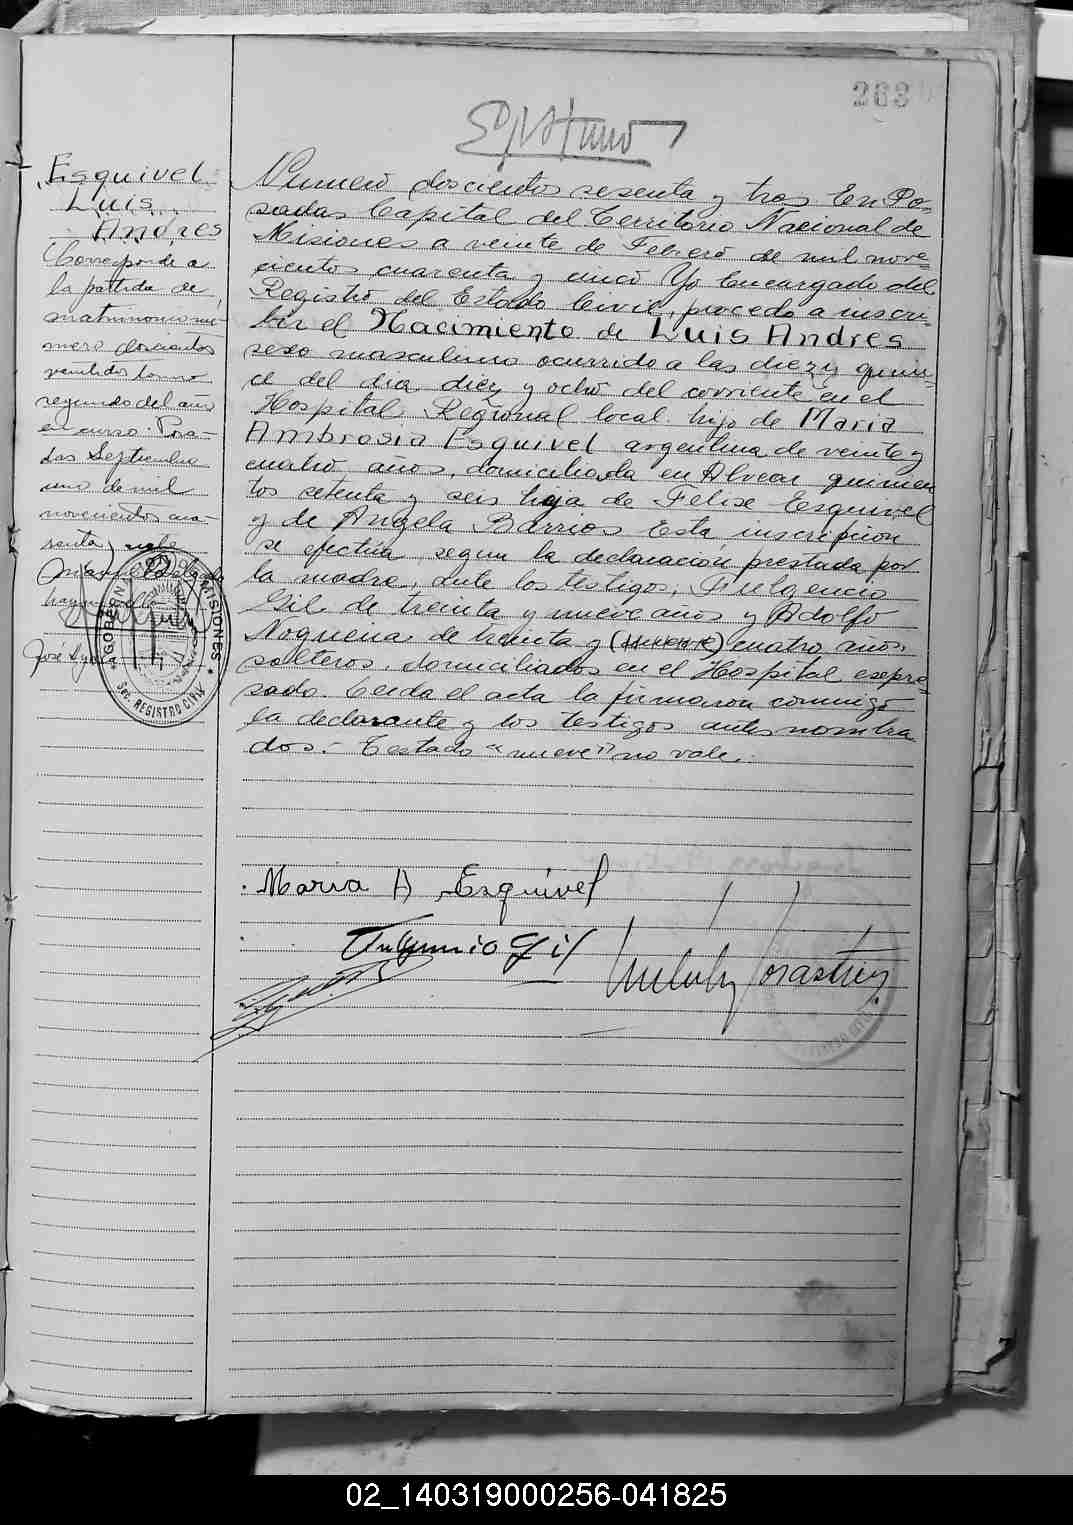 263
Esquivel
Luis
Andres
Corresponde a
la partida de
matrimonio nu-
mero doscientos
veintidos tomo
segundo del año
en curso. Posa-
das Septiembre
uno de mil
novecientos cua-
renta y
Numero doscientos sesenta y tres En Po-
sadas Capital del Territorio Nacional de
Misiones a veinte de Febrero de mil nove-
cientos cuarenta y cinco Yo Encargado del
Registro del Estado Civil, procedo a inscri-
bir el Nacimiento de Luis Andres
sexo masculino ocurrido a las diez y quin-
ce del dia diez y ocho del corriente en el
Hospital Regional local hijo de Maria
Ambrosia Esquivel argentina de veinte y
cuatro años, domiciliada en Alvear quinien
tos setenta y seis hija de Felix Esquivel
y de Angela Barrios Esta inscripcion
se efectua segun la declaracion prestada por
la madre, ante los testigos, Fulgencio
Gil de treinta y nueve años y Adolfo
Noguera de treinta y (nueve) cuatro años
solteros, domiciliados en el Hospital expre-
sado. Leida el acta la firmaron conmigo
la declarante y los testigos antes nombra
dos.- Testado "nueve" no vale.
GOBERN MISIONES
SEC. REGISTRO CIVIL
Maria A Esquivel
Fulgencio Gil
02_140319000256-041825